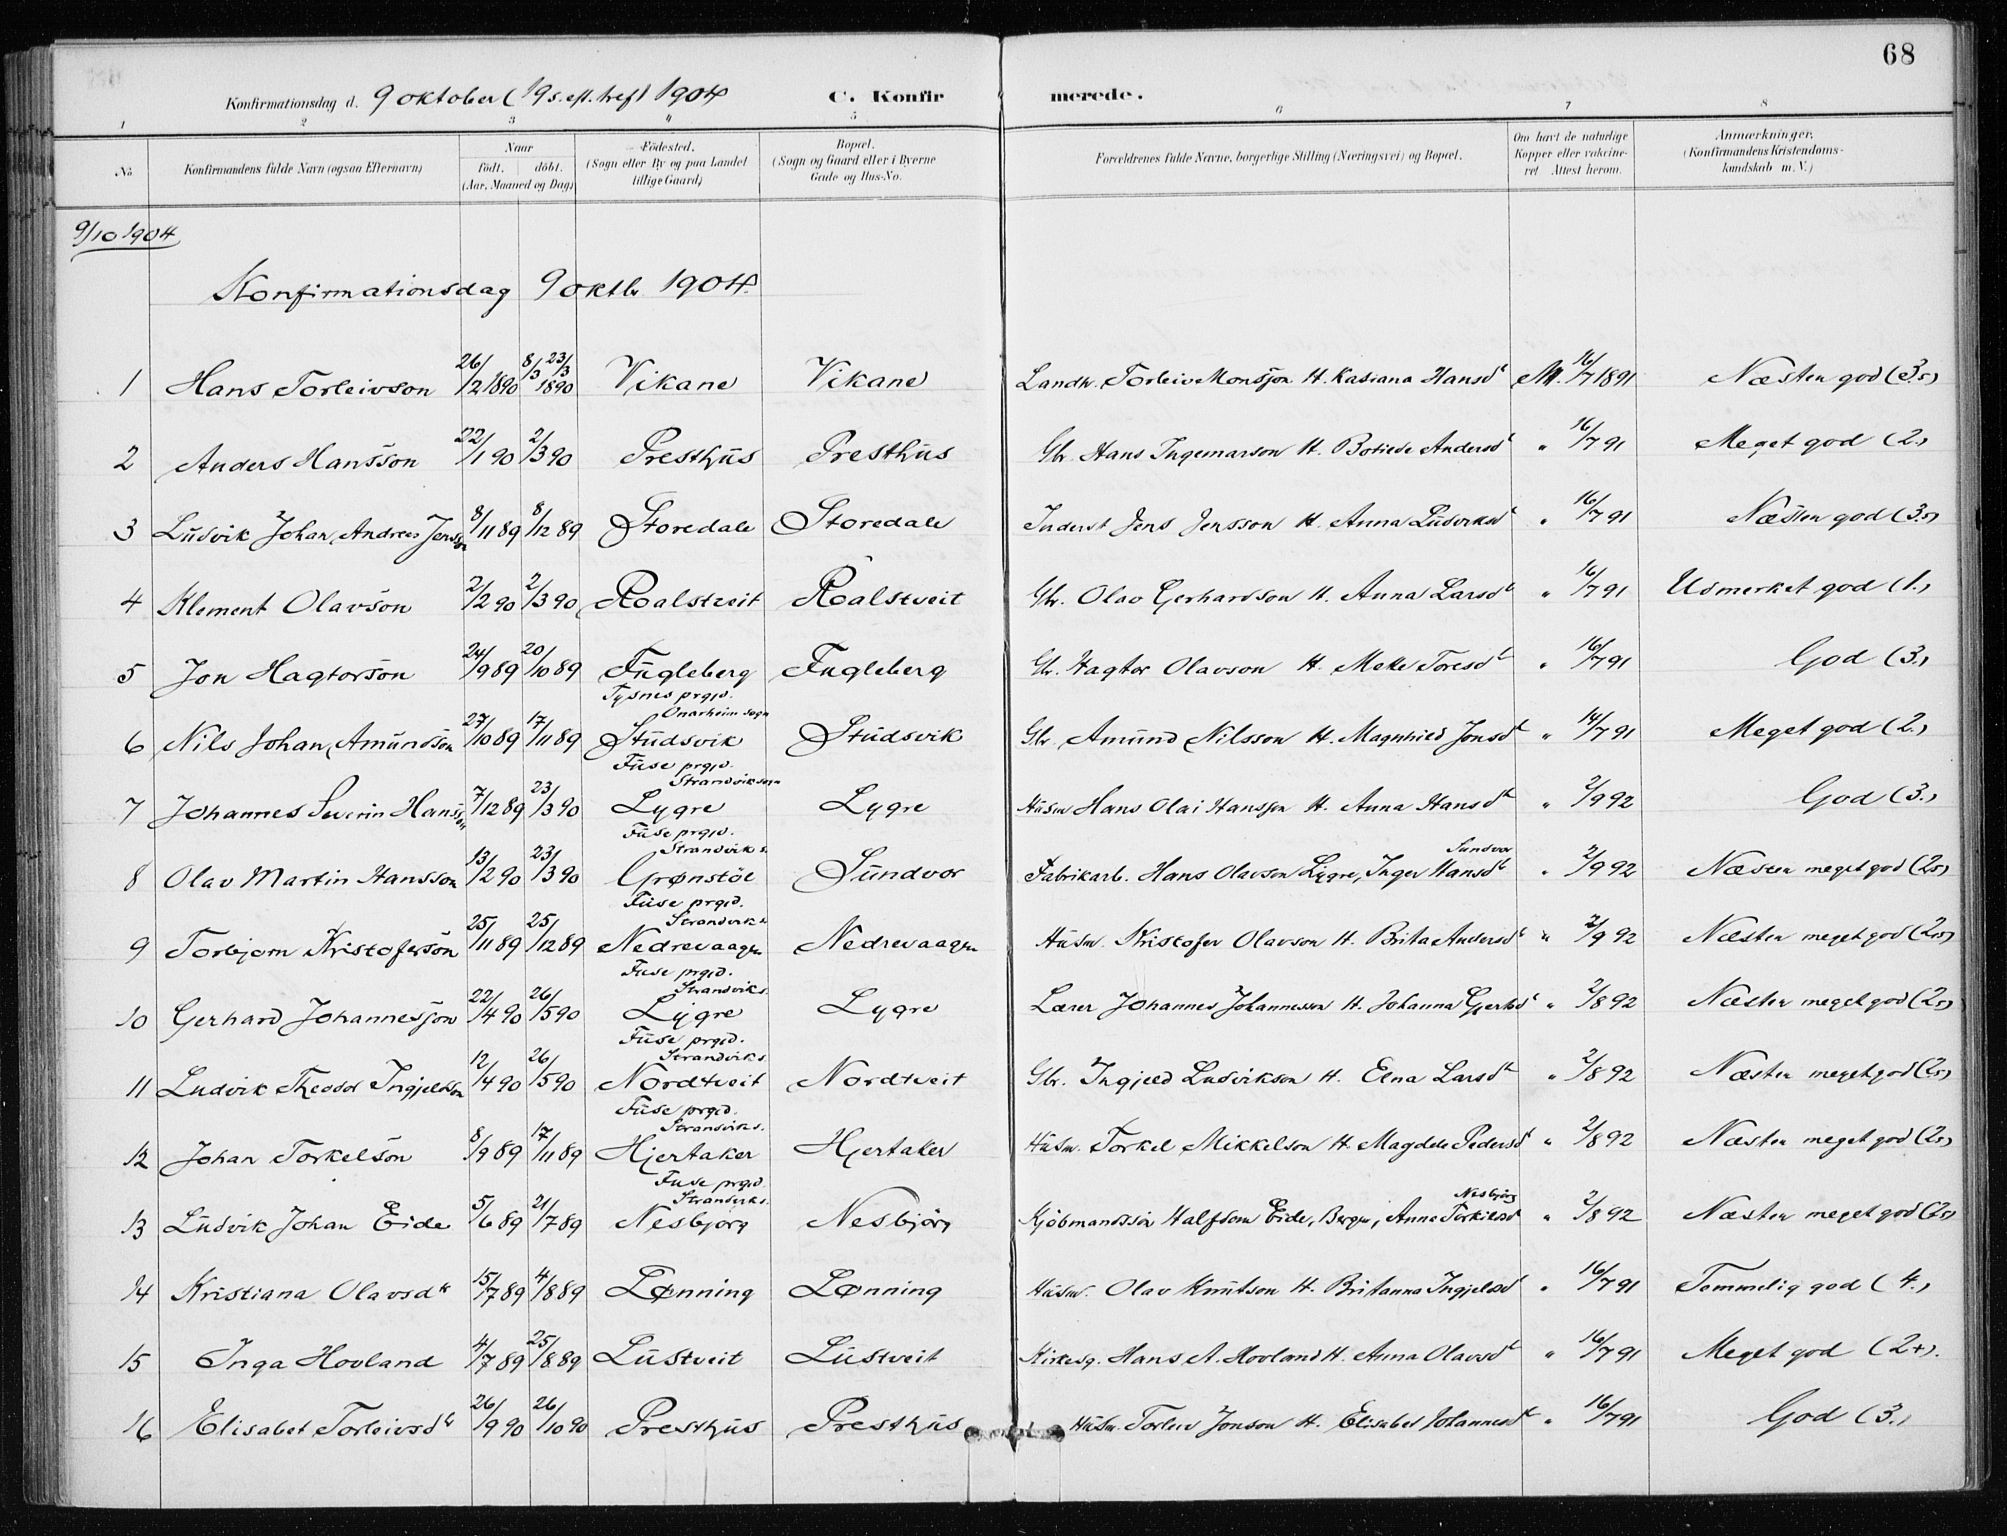 68
Konfirmationsdag d. 9 oktober (19 s. eft. tref) 1904 C. Konfir merede.
1 2 3 4 5 6 7 8
No Konfirmandens fulde Navn (ogsaa Efternavn) Naar födt. döbt. (Aar, Maaned og Dag) Födested. (Sogn eller By og paa Landet tillige Gaard) Bopæl. (Sogn og Gaard eller i Byerne Gade og Hus-No. Forældrenes fulde Navne, borgerlige Stilling (Næringsvei) og Bopæl. Om havt de naturlige Kopper eller vakcineret Attest herom. Anmærkninger. (Konfirmandens Kristendomskundskab m. V.)
9/10 1904
Konfirmationsdag 9 oktbr 1904.
1 Hans Torleivson 26/2 1890 8/3 23/3 1890 Vikane Vikane Landh. Torleiv Monsson H. Kasiana Hansdt M. 16/7 1891 Næsten god (3.5)
2 Anders Hansson 22/1 90 2/3 90 Presthus Presthus Gbr. Hans Ingemarson H. Botilde Andersdt " 16/7 91 Meget god (2.)
3 Ludvik Johan Andreas Jensson 8/11 89 8/12 89 Storedale Storedale Inderst Jens Jensson H. Anna Ludviksdt " 16/7 91 Næsten god (3.5)
4 Klement Olavson 2/2 90 2/3 90 Roalstveit Roalstveit Gbr. Olav Gerhardson H. Anna Larsdt " 16/7 91 Udmerket god (1.)
5 Jon Hagtorson 24/9 89 20/10 89 Fugleberg Fugleberg Gbr. Hagtor Olavson H. Mette Toresdt " 16/7 91 God (3.)
Tysnes prgjd. Onarheim sogn
6 Nils Johan Amundson 27/10 89 17/11 89 Studsvik Studsvik Gbr. Amund Nilsson H. Magnhild Jonsdt " 14/7 91 Meget god (2.)
Fuse prgjd. Strandvik sogn
7 Johannes Severin Hansson 7/12 89 23/3 90 Lygre Lygre Husm Hans Olai Hansson H. Anna Hansdt " 2/9 92 God (3.)
Fuse prgjd. Strandvik s. Sundvor
8 Olav Martin Hansson 13/2 90 23/3 90 Grønstøl Sundvor Fabrikarb. Hans Olavson Lygre, Inger Hansdt " 2/9 92 Næsten meget god (2.5)
Fuse prgjd. Strandvik s.
9 Torbjørn Kristoferson 25/11 89 25/12 89 Nedrevaagen Nedrevaagen Husm. Kristofer Olavson H. Brita Andersdt " 2/9 92 Næsten meget god (2.5)
Fuse prgjd. Strandvik s.
10 Gerhard Johannesson 22/4 90 26/5 90 Lygre Lygre Lærer Johannes Johannesson H. Johanna Gjertsdt " 2/8 92 Næsten meget god (2.5)
Fuse prgjd. Strandvik s.
11 Ludvik Theodor Ingjeldson 12/4 90 26/5 90 Nordtveit Nordtveit Gbr. Ingjeld Ludvikson H. Elna Larsdt " 2/8 92 Næsten meget god (2.5)
Fuse prgjd. Strandvik s.
12 Johan Torkelson 8/9 89 17/11 89 Hjertaker Hjertaker Husm. Torkel Mikkelson H. Magdele Pedersdt " 2/8 92 Næsten meget god (2.5)
Fuse prgjd. Strandvik s. Nesbjørg
13 Ludvik Johan Eide 5/6 89 21/7 89 Nesbjørg Nesbjörg Kjöbmandssön Halfdan Eide, Bergen, Anna Torkilsdt " 2/8 92 Næsten meget god (2.5)
14 Kristiana Olavsdtr 15/7 89 4/8 89 Lønning Lønning Husm. Olav Knutson H. Britanna Ingjelsdt " 16/7 91 Temmelig god (4.)
15 Inga Hovland 4/7 89 25/8 89 Lustveit Lustveit Kirkesg. Hans A. Hovland H. Anna Olavsdt " 16/7 91 Meget god (2+).
16 Elisabet Torleivsdtr 26/9 90 26/10 90 Presthus Presthus Husm. Torleiv Jonson H. Elisabet Johannesdt " 16/7 91 God (3.)